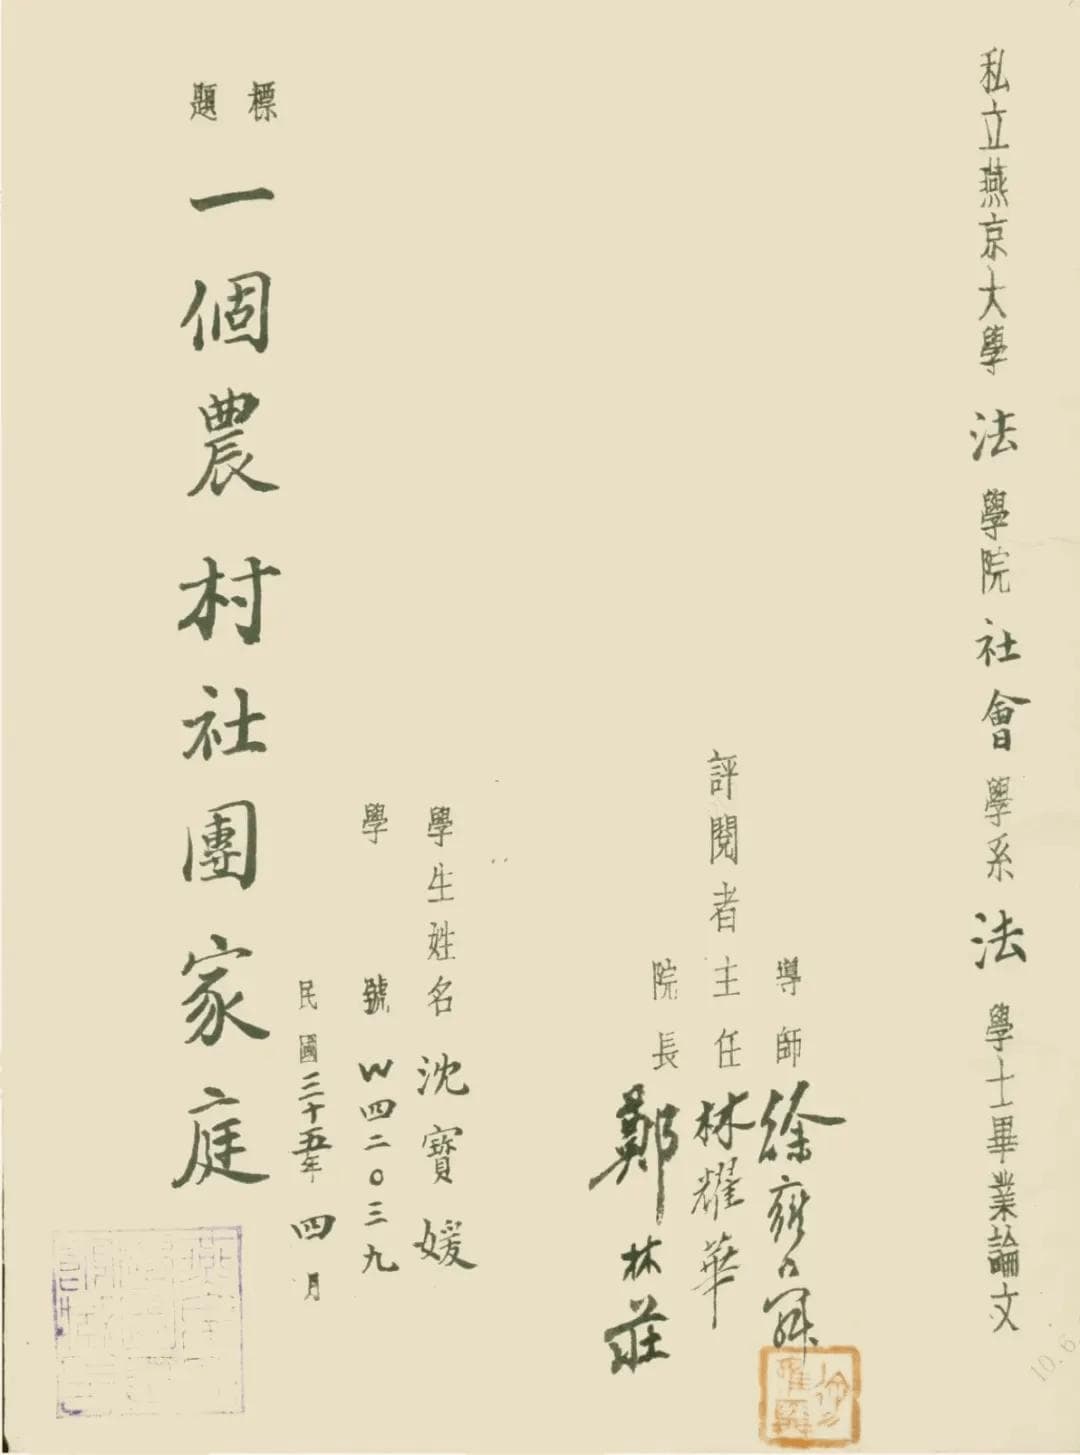 私立燕京大學法學院社會學系法學士畢業論文
導師徐雍舜
評閱者主任林耀華
院長鄭林莊
學生姓名沈寶媛
學號W四二〇三九
民國三十五年四月
標題一個農村社團家庭
10.6